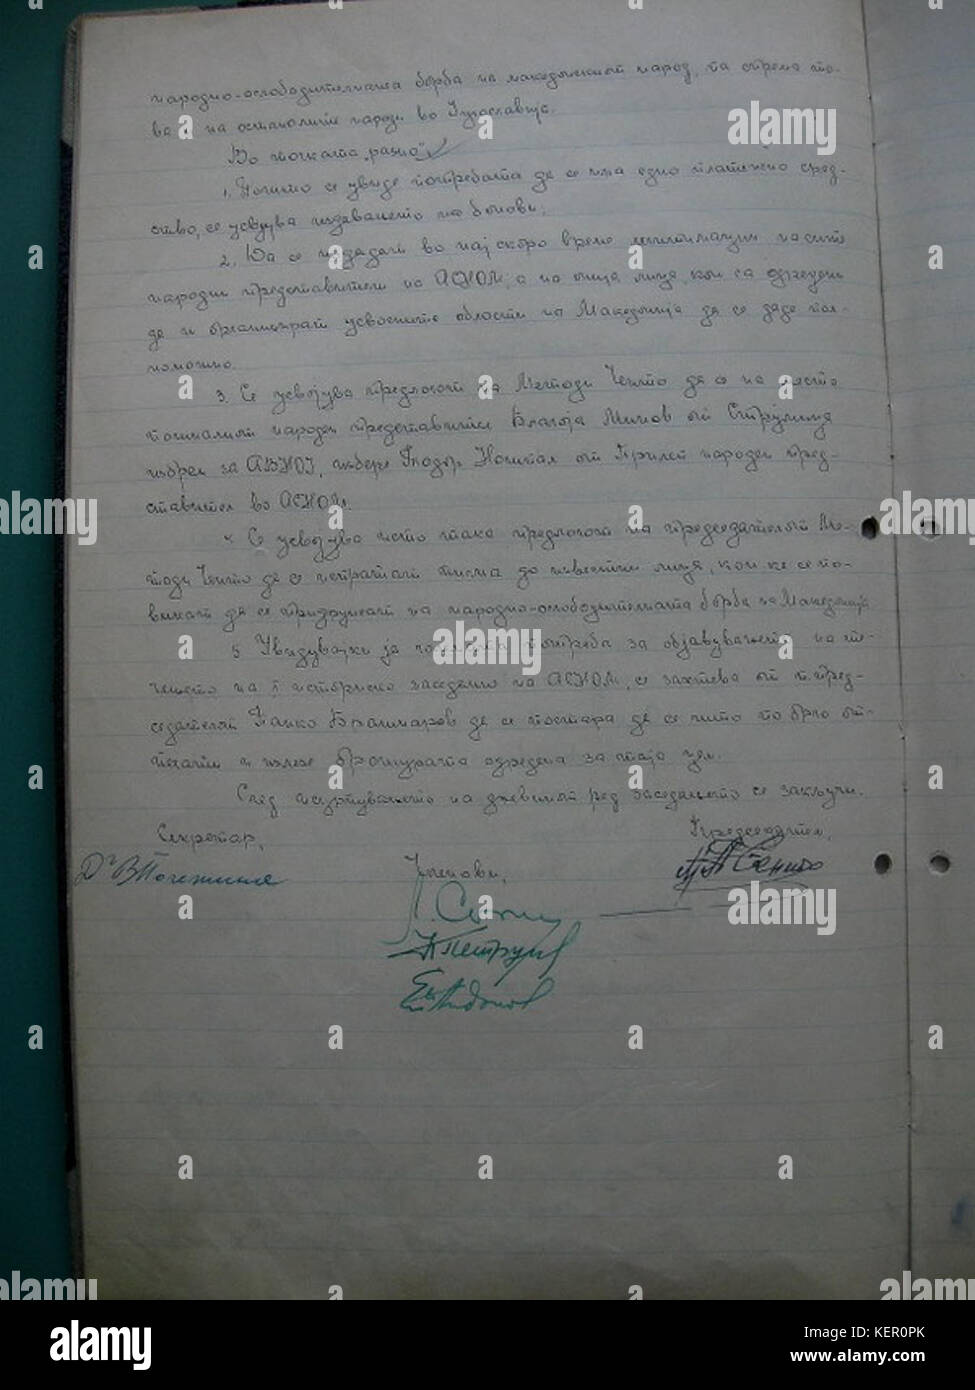 народно-ослободителната борба на македонскиот народ, па спрема то-
ва и на останалите народи во Југославија.
Во точката „разно“
1. Бидејќи се увиде потребата да се има едно платежно сред-
ство, се усвојува издавањето на бонови;
2. Да се издадат во најскоро време легитимации на сите
народни представители на АСНОМ, а на оние лица, кои са одредени
да и организират усвоените области на Македонија да се даде пол-
номошно.
3. Се усвојува предлогот на Методи Ченто да се на место
починалиот народен представител Благоја Мучов от Струмица
избран за АВНОЈ, избере от Прилеп народен пред-
ставител во АСНОМ.
4. Се усвојува исто така предлогот на председателот Ме-
тоди Ченто да се испратат писма до известни лица, кои ке се по-
викат да се придружат на народно-ослободителната борба на Македонија
5. Увидувајки ја потреба за објавувањето на
на I историско заседание на АСНОМ, се захтева от п.пред-
седателот Панко Брашнаров да се постара да се што по брго от-
печати и излезе брошурата одредена за таја цел.
След исцрпувањето на дневниот ред заседањето се заклучи.
Секретар, Председател,
Членови,
alamy
Image ID: KER0PK
www.alamy.com